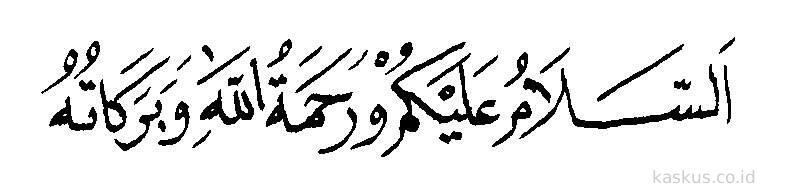 اَلسَّلَامُ عَلَيْكُمْ وَرَحْمَةُ اللهِ وَبَرَكَاتُهُ
kaskus.co.id